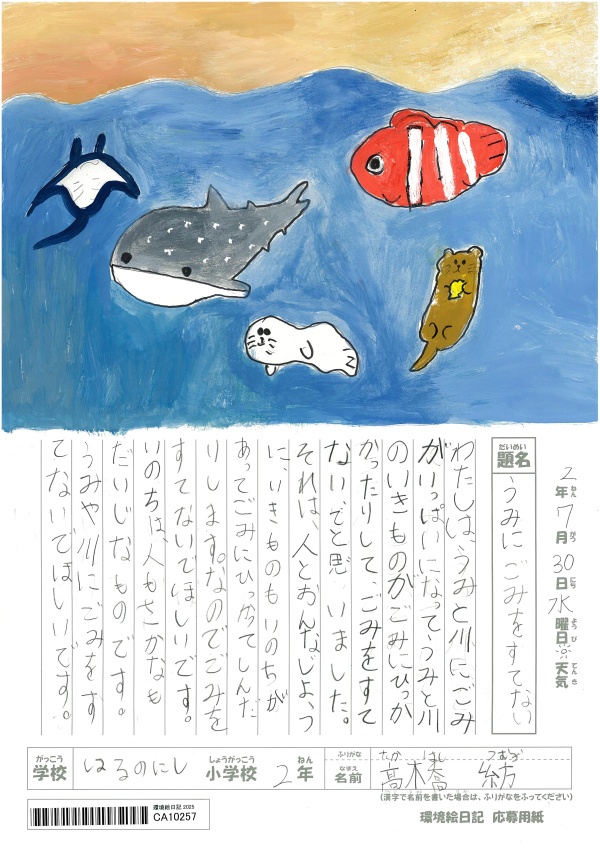 2年7月30日水曜日天気
ねん がつ にち ようび てんき
だいめい
題名
うみにごみをすてない
わたしは、うみと川にごみ
がいっぱいになって、うみと川
のいきものがごみにひっか
かったりして、ごみをすて
ない、でと思いました。
それは、人とおんなじよ、つ
に、いきものもいのちが
あってごみにひっかってしんだ
りします。なのでごみを
すてないでほしいです。
いのちは、人もさかなも
だいじなものです。
うみや川にごみをす
てないでほしいです。
がっこう
学校
はるのにし
しょうがっこう
小学校
2年
ねん
ふりがな
なまえ
名前
たか はし つむぎ
髙木喬 紡
(漢字で名前を書いた場合は、ふりがなをふってください)
環境絵日記 2025
CA10257
環境絵日記 応募用紙